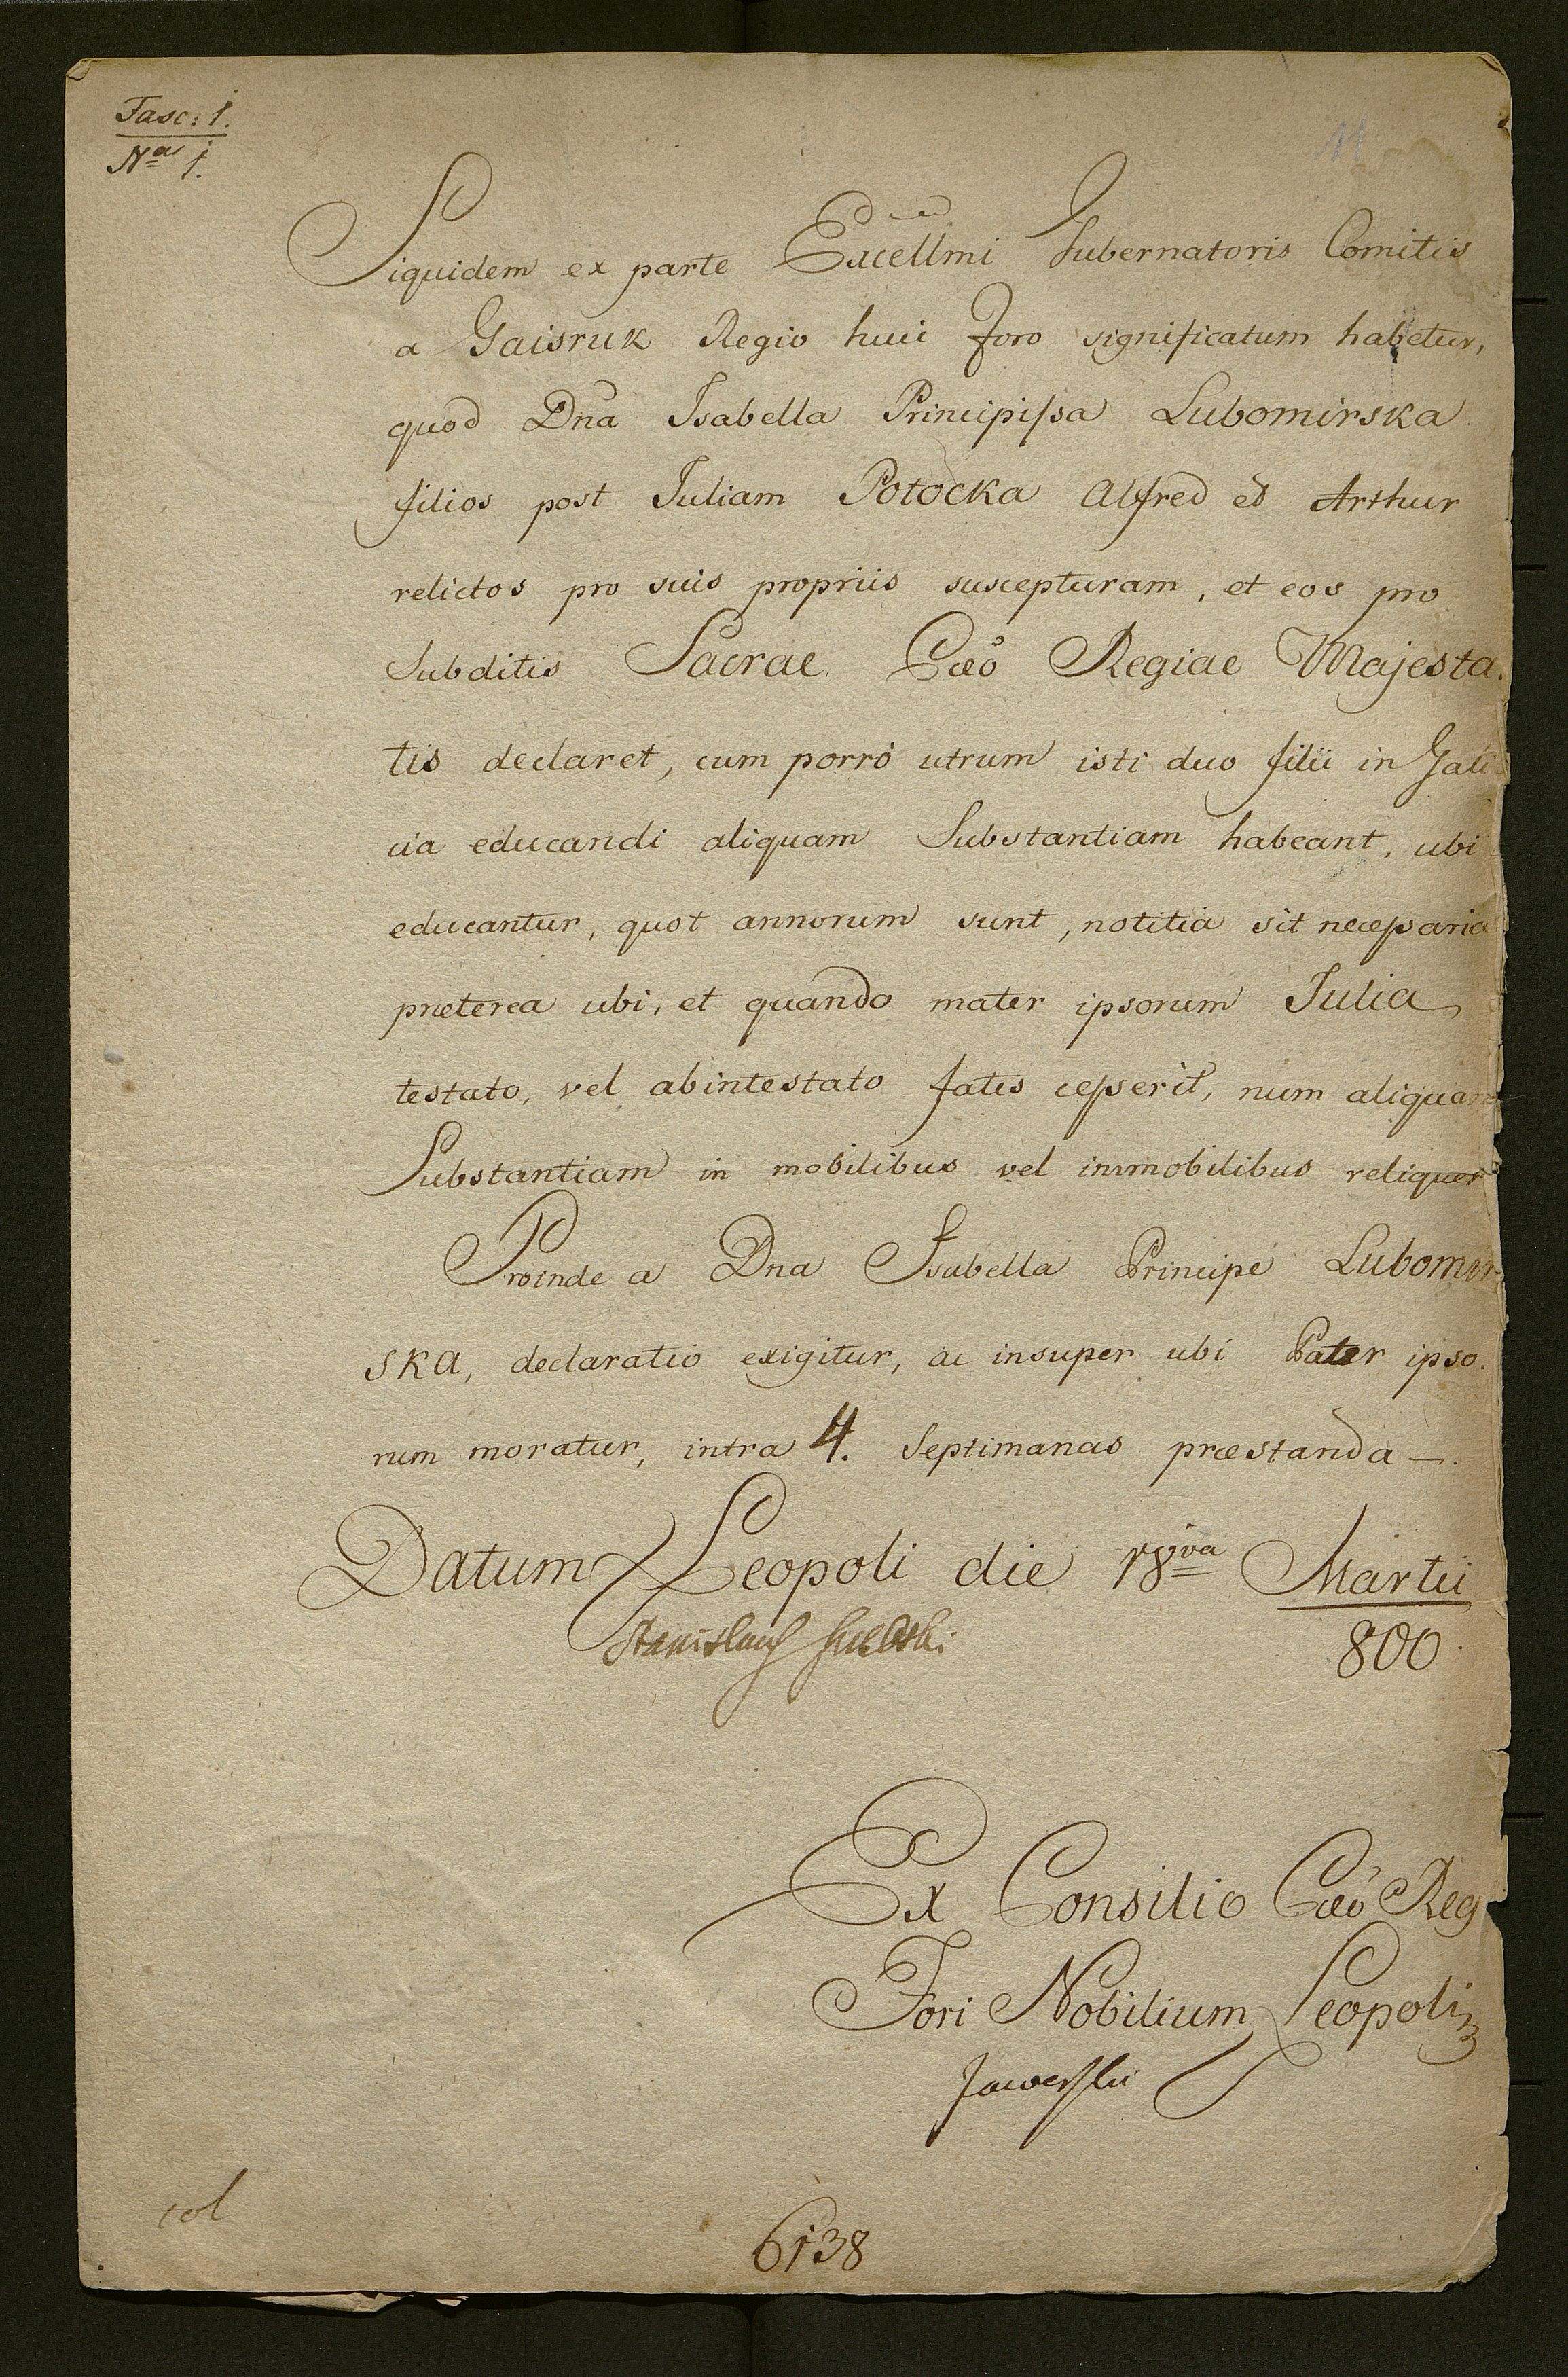 Fasc: 1.
Nª 1.
11
Siquidem ex parte Excellmi Gubernatoris Comitis
a Gaisruk Regio huic Foro significatum habetur,
quod Dna Isabella Principissa Lubomirska
filios post Juliam Potocka Alfred et Arthur
relictos pro suis propriis suscepturam, et eos pro
Subditis Sacrae Caeo Regiae Majesta.
tis declaret, cum porro utrum isti duo filii in Gali
cia educandi aliquam Substantiam habeant, ubi
educantur, quot annorum sunt, notitia sit necessaria
praeterea ubi, et quando mater ipsorum Julia
testato, vel abintestato fatis cesserit, num aliquam
Substantiam in mobilibus vel immobilibus reliquer
Proinde a Dna Isabella Principe Lubomir
ska, declaratio exigitur, ac insuper ubi Pater ipso.
rum moratur, intra 4. Septimanas praestanda —.
Datum Leopoli die 18va Martii
800
Stanislaus
Ex Consilio Caeo Reg
Fori Nobilium Leopoli
Jaworski
col
6138